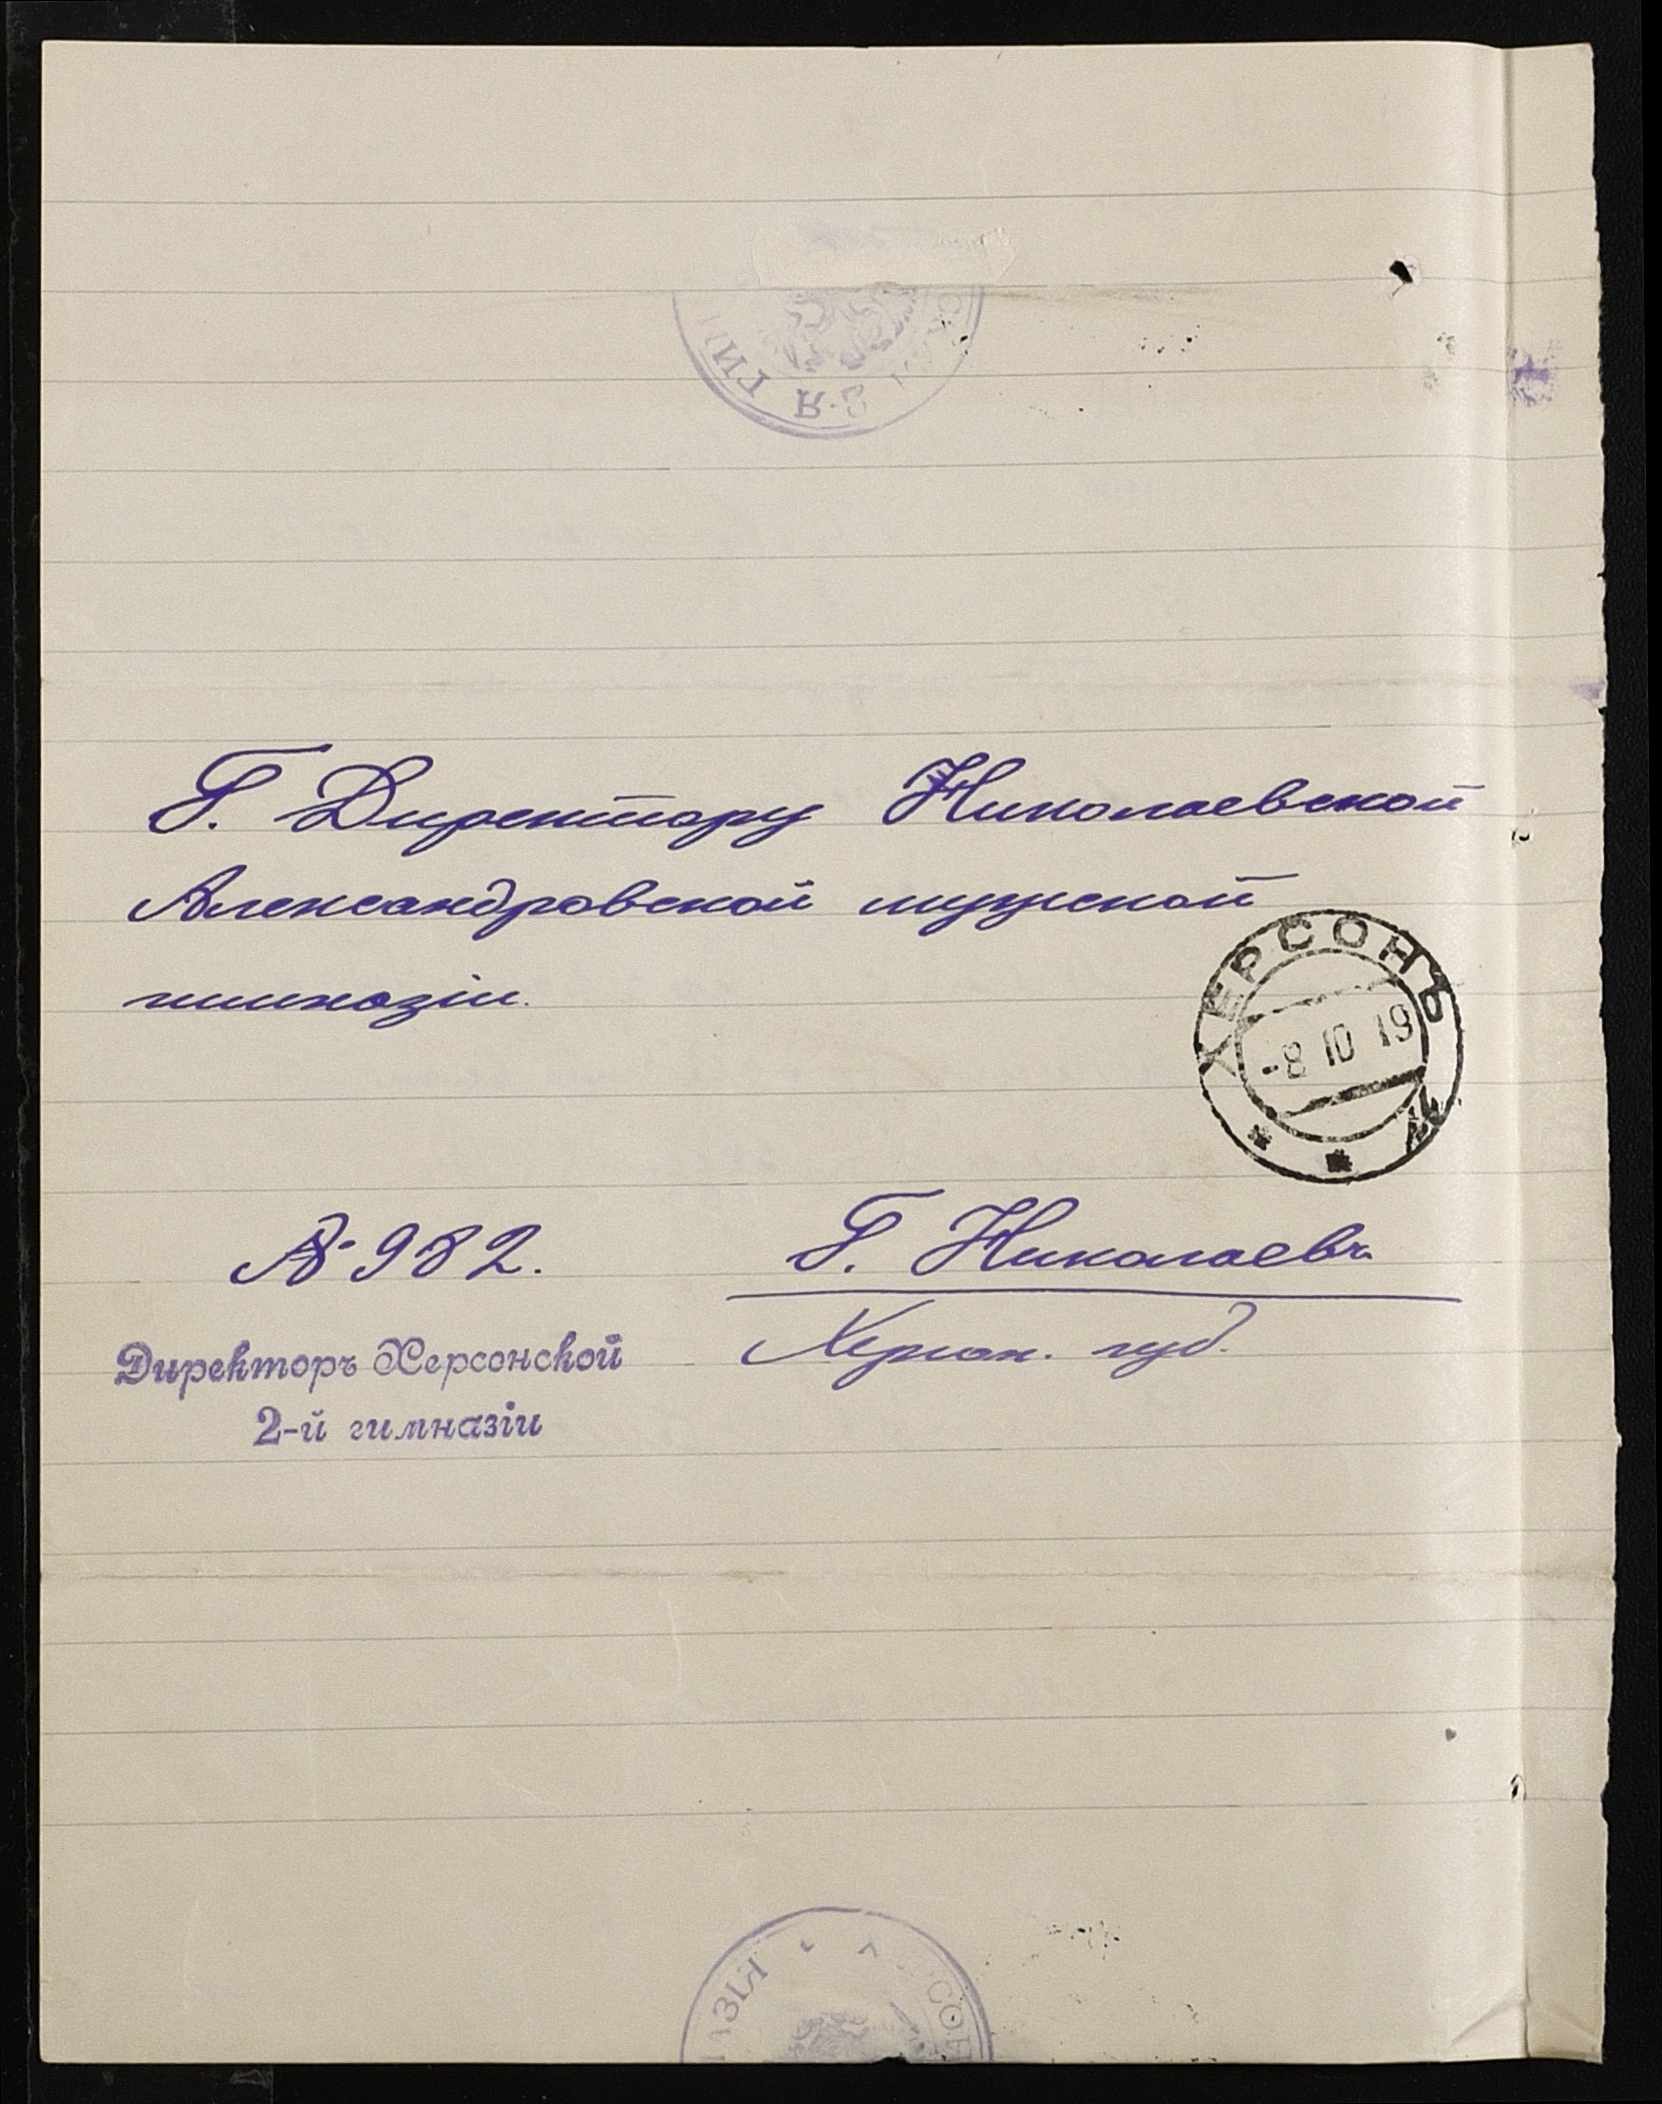 2-Я ГИМ
Г. Директору Николаевской
Александровской мужской
гимназіи.
ХЕРСОНЪ
-8 10 19
№ 982.
Г. Николаевъ
Херсон. губ.
Директоръ Херсонской
2-й гимназіи
АЗІЯ * ХЕРСОН